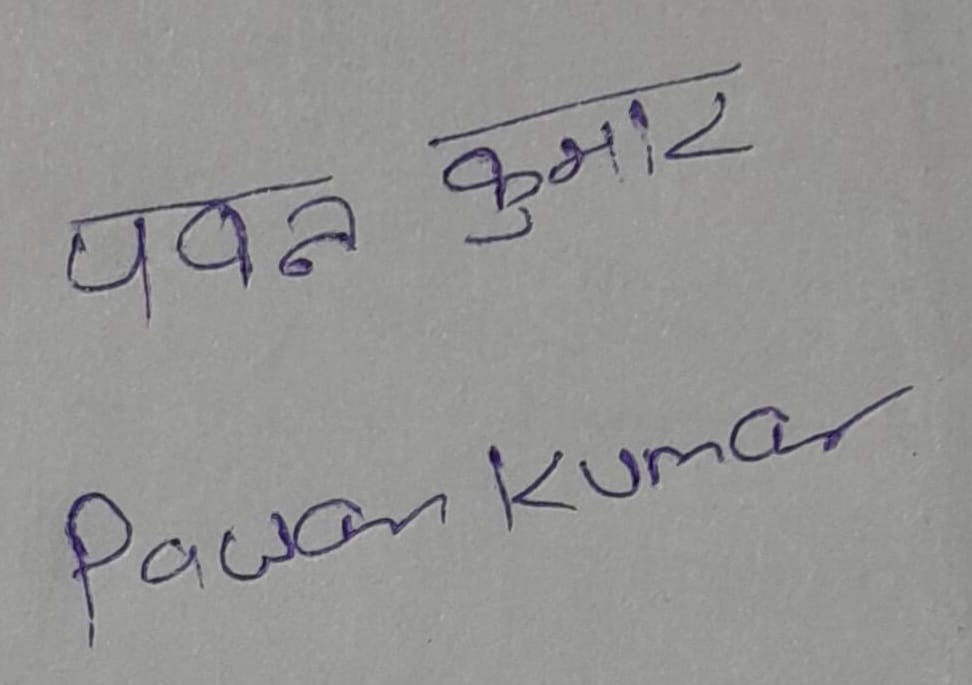 पवन कुमार
Pawan Kumar